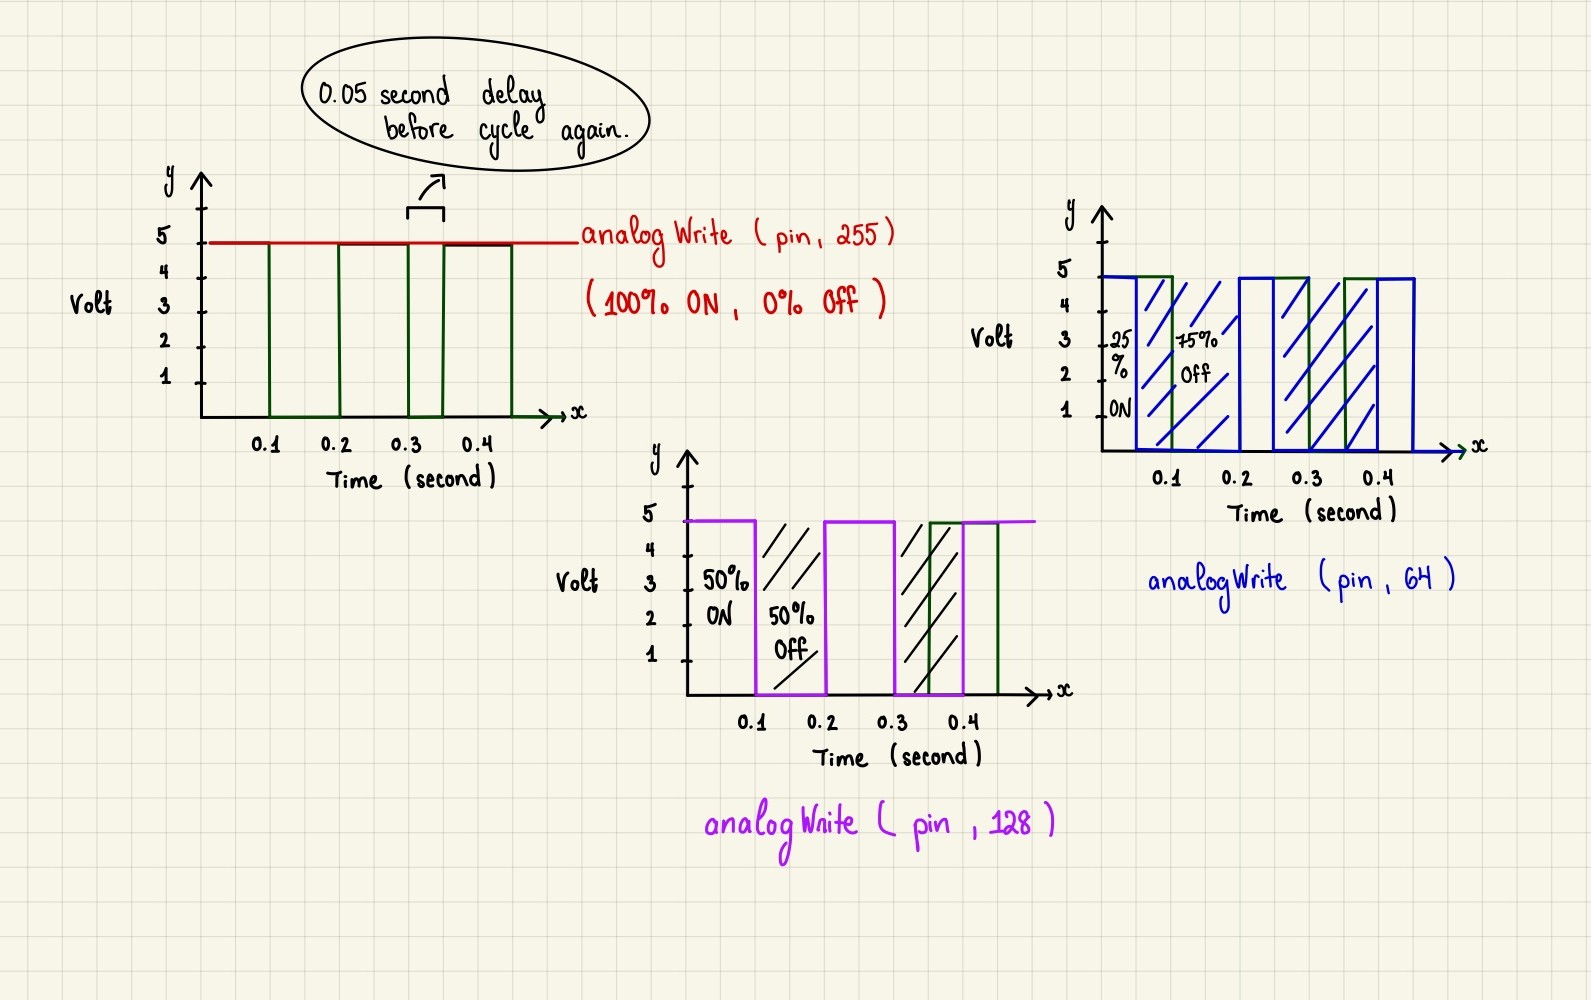 0.05 second delay
before cycle again.
y
5
4
3
2
1
Volt
0.1 0.2 0.3 0.4
x
Time (second)
analogWrite (pin, 255)
(100% ON, 0% Off)
y
5
4
3
2
1
Volt
50%
ON
50%
Off
0.1 0.2 0.3 0.4
x
Time (second)
analogWrite (pin, 128)
y
5
4
3
2
1
Volt
25
%
ON
75%
Off
0.1 0.2 0.3 0.4
x
Time (second)
analogWrite (pin, 64)